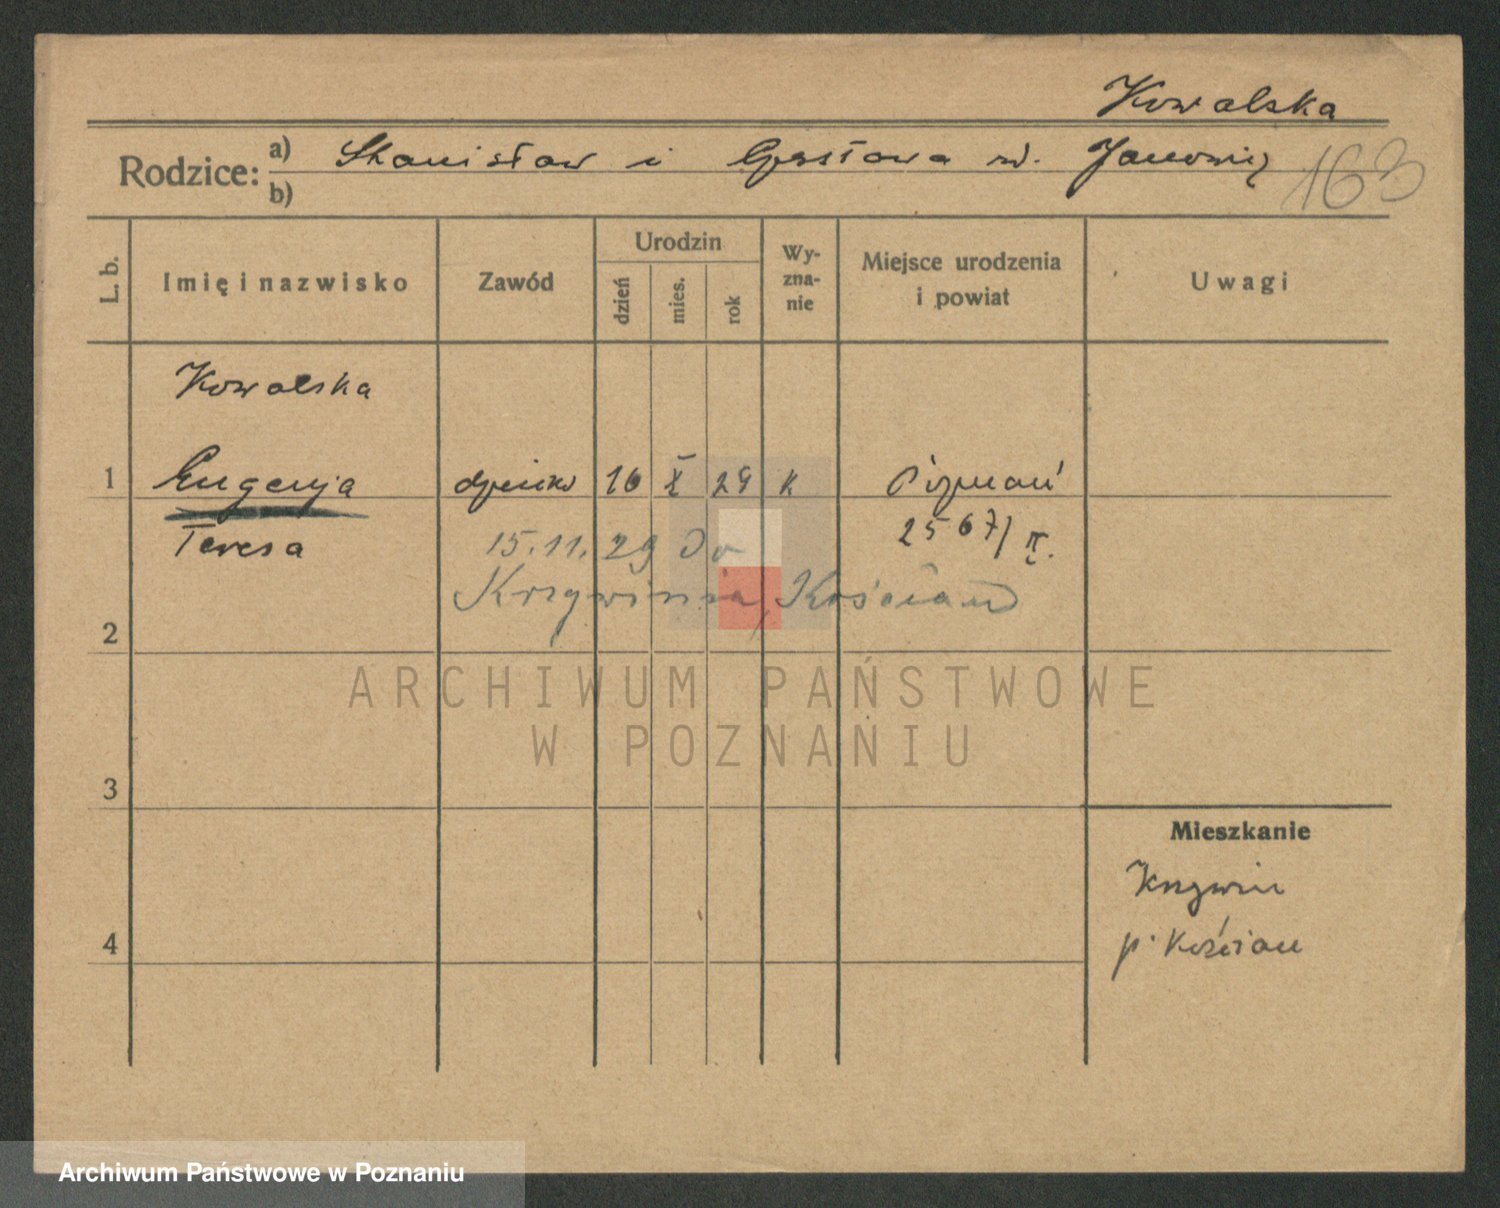 Kowalska
Rodzice: a) Stanisław i Czesława ur.
b)
163
L. b. Imię i nazwisko Zawód Urodzin dzień mies. rok Wy-zna-nie Miejsce urodzenia i powiat Uwagi
Kowalska
1 Eugenja dziecko 16 X 29 k Poznań
Teresa 2567/II.
15.11.29 do
Krzywinia, Kościan
2
ARCHIWUM PAŃSTWOWE
W POZNANIU
3
Mieszkanie
Krzywin
4 p. Kościan
Archiwum Państwowe w Poznaniu